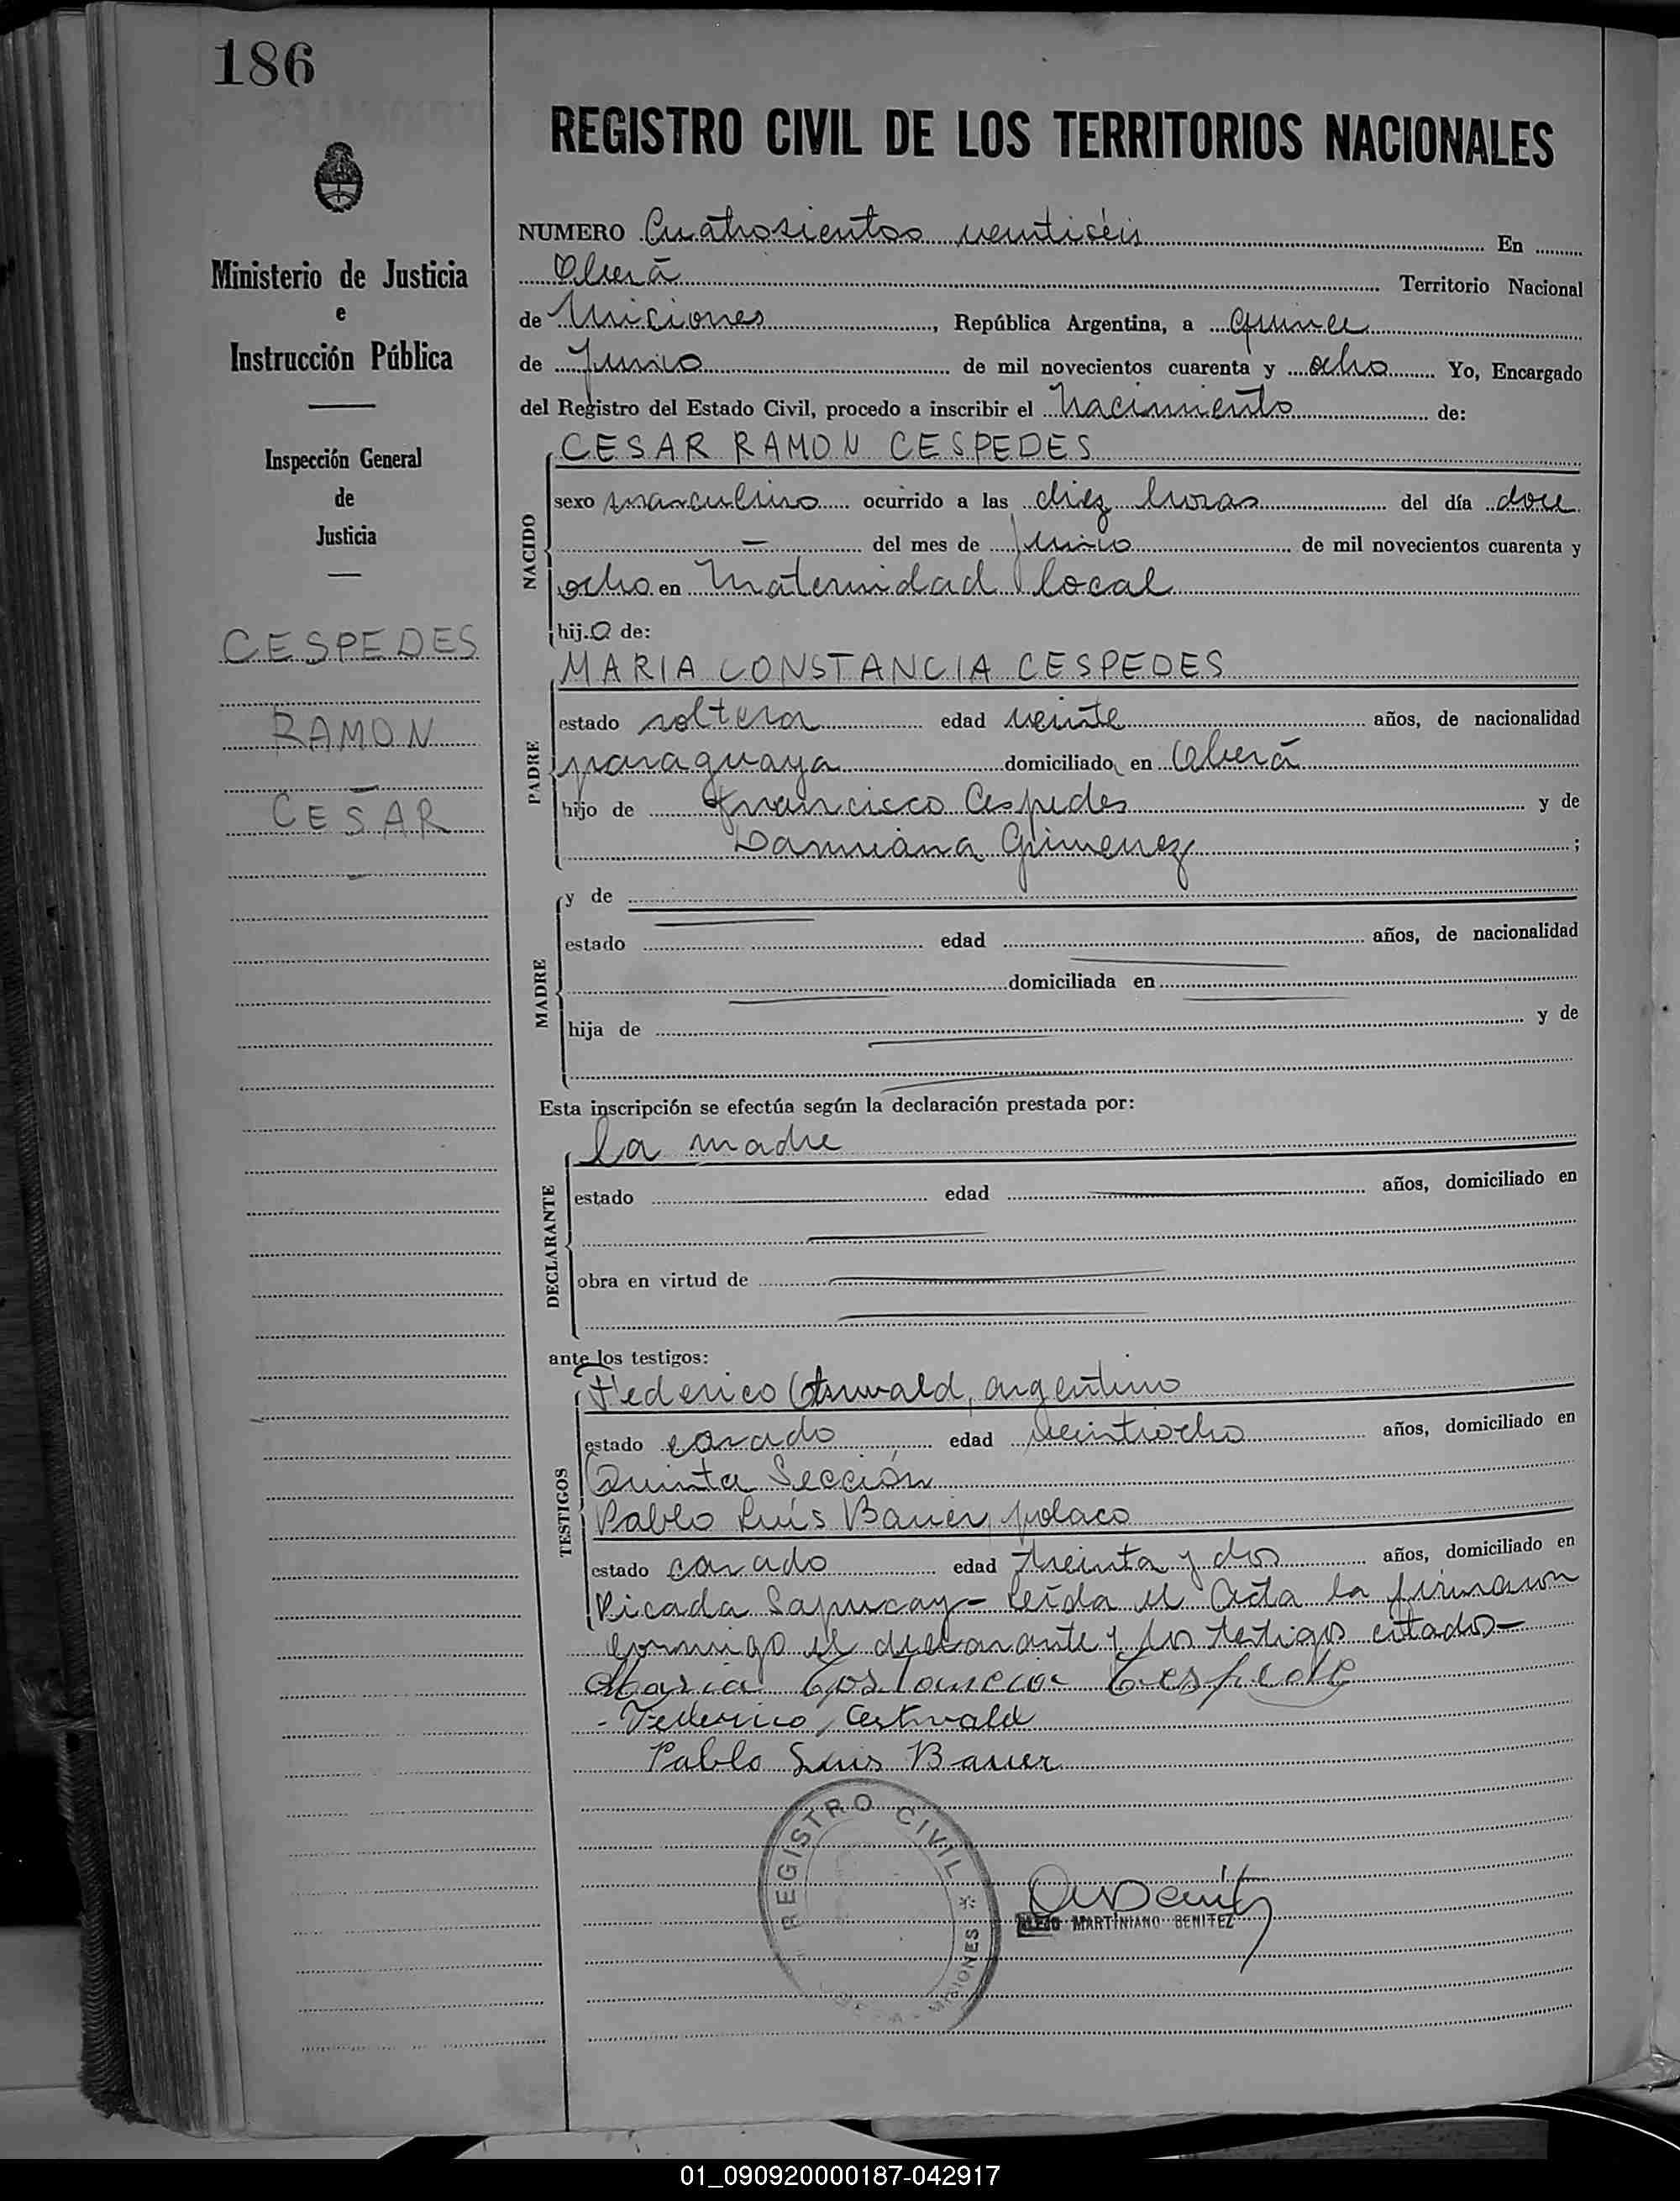 186
Ministerio de Justicia
e
Instrucción Pública
Inspección General
de
Justicia
CESPEDES
RAMON
CESAR
REGISTRO CIVIL DE LOS TERRITORIOS NACIONALES
NUMERO Cuatrosientos ventiséis En
Oberá Territorio Nacional
de Miciones, República Argentina, a quince
de Junio de mil novecientos cuarenta y ocho Yo, Encargado
del Registro del Estado Civil, procedo a inscribir el Nacimiento de:
CESAR RAMON CESPEDES
NACIDO
sexo masculino ocurrido a las diez horas del día doce
— del mes de Junio de mil novecientos cuarenta y
ocho en Maternidad local
hij.o de:
MARIA CONSTANCIA CESPEDES
PADRE
estado soltera edad veinte años, de nacionalidad
paraguaya domiciliado en Oberá
hijo de Francisco Cespedes y de
Damiana Gimenez;
MADRE
y de
estado edad años, de nacionalidad
domiciliada en
hija de y de
Esta inscripción se efectúa según la declaración prestada por:
la madre
DECLARANTE
estado edad años, domiciliado en
obra en virtud de
ante los testigos:
TESTIGOS
Federico argentino
estado casado edad veintiocho años, domiciliado en
Quinta Sección
Pablo Luís Bauer, polaco
estado casado edad treinta y dos años, domiciliado en
Picada Sapucay - Leída el Acta la firmaron
conmigo el declarante y los testigos citados -
Maria Cespede
- Federico
Pablo Luis Bauer
REGISTRO CIVIL * MISIONES
MARTINIANO BENITEZ
01_090920000187-042917